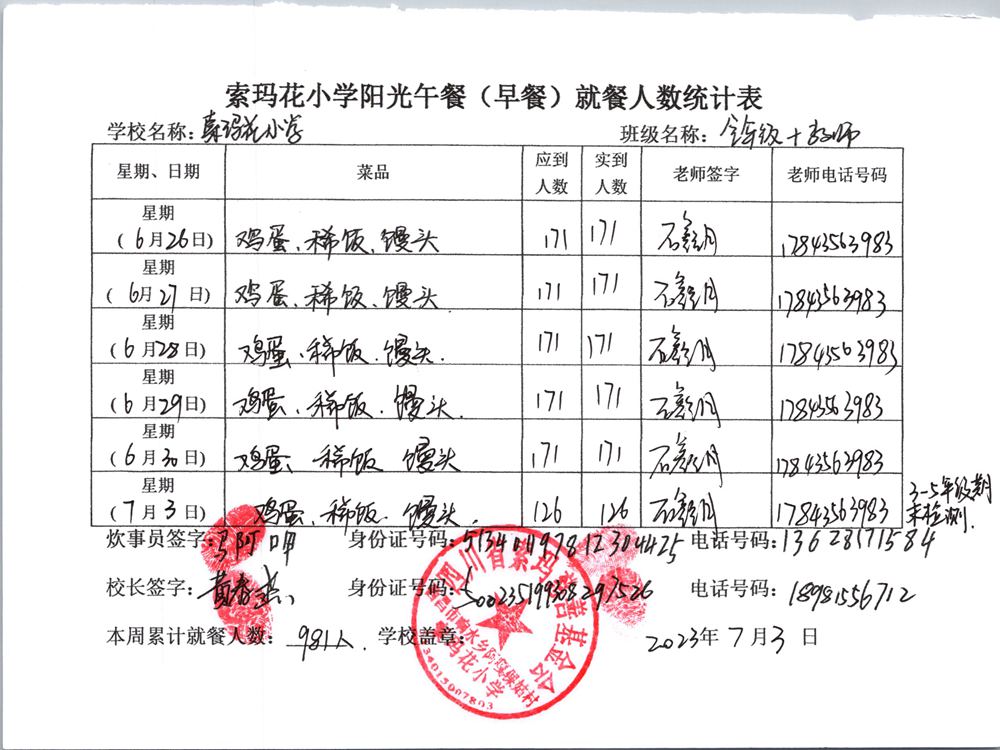 索玛花小学阳光午餐（早餐）就餐人数统计表
学校名称：索玛花小学 班级名称：全年级+教师
星期、日期 菜品 应到人数 实到人数 老师签字 老师电话号码
星期
(6月26日) 鸡蛋、稀饭、馒头 171 171 17843563983
星期
(6月27日) 鸡蛋、稀饭、馒头 171 171 17843563983
星期
(6月28日) 鸡蛋、稀饭、馒头. 171 171 17843563983
星期
(6月29日) 鸡蛋、稀饭、馒头. 171 171 17843563983
星期
(6月30日) 鸡蛋、稀饭 馒头 171 171 17843563983
星期
(7月3日) 鸡蛋、稀饭、馒头. 126 126 17843563983
3-5年级期末检测.
炊事员签字： 身份证号码： 电话号码：13628171584
校长签字： 身份证号码：500235199308297526 电话号码：18981556712
本周累计就餐人数：981人. 学校盖章：
2023年7月3日
四川省索玛慈善基金会
索玛花小学
34015007803